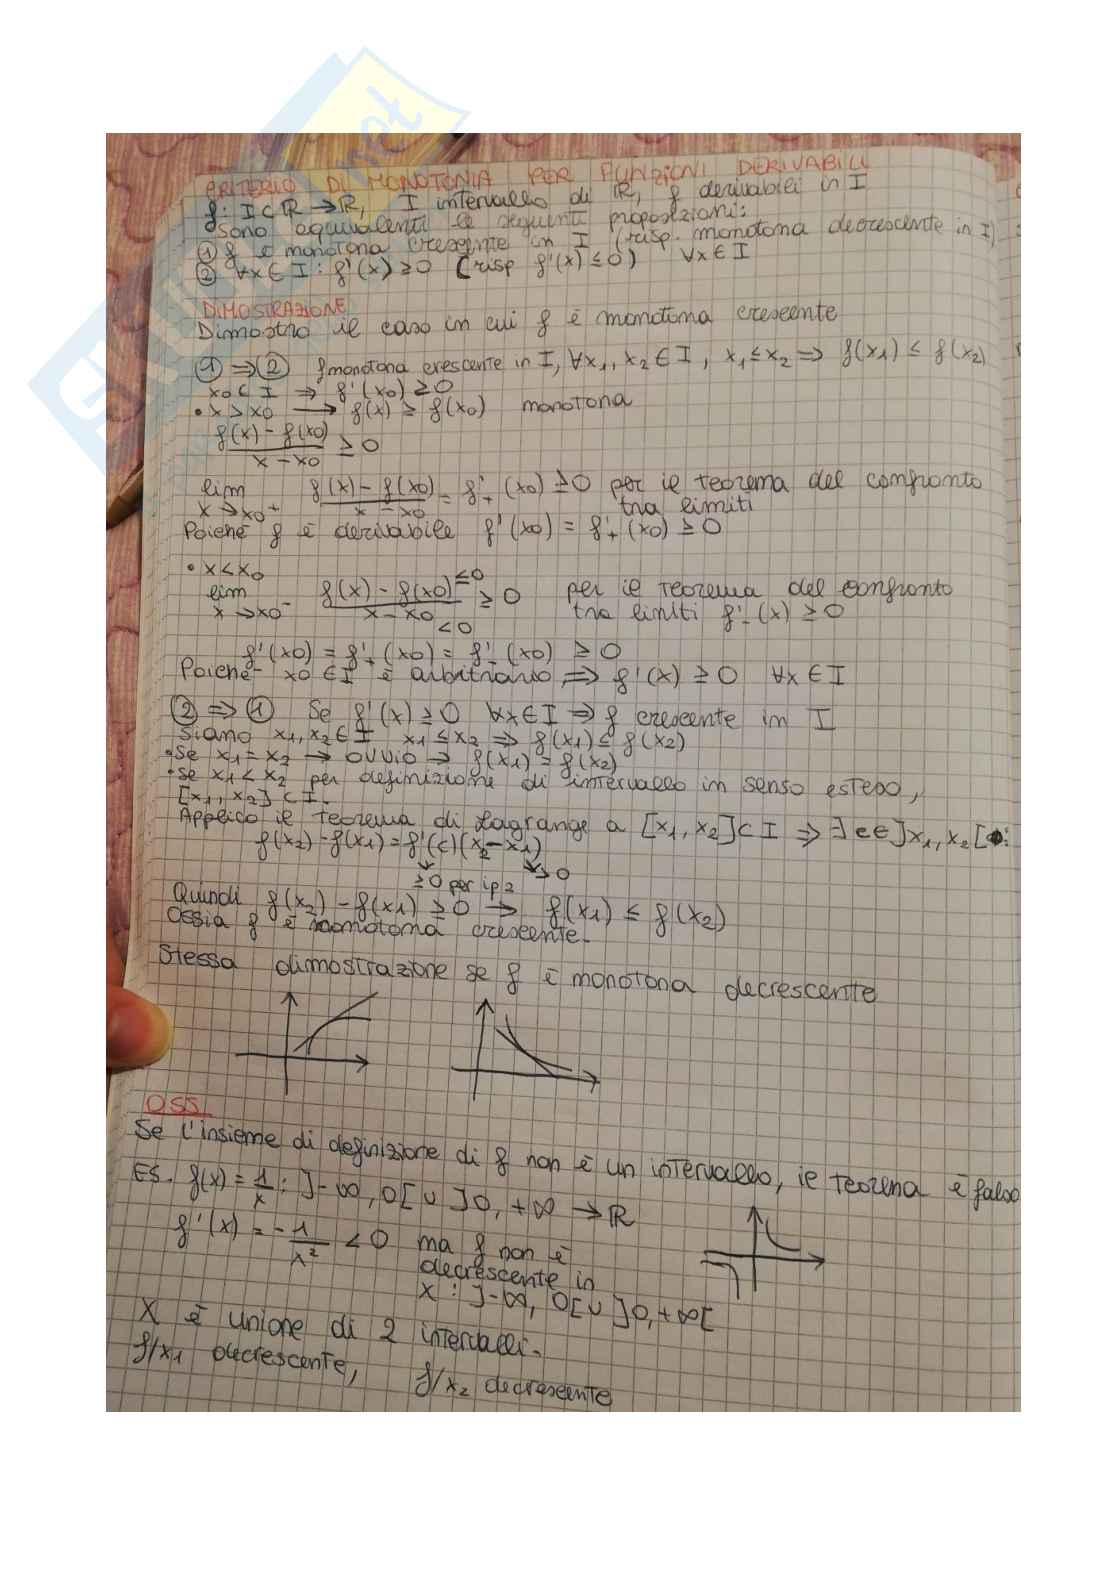 CRITERIO DI MONOTONIA PER FUNZIONI DERIVABILI
f: I⊂ℝ→ℝ, I intervallo di ℝ, f derivabile in I
sono equivalenti le seguenti proposizioni:
① f è monotona crescente in I (risp. monotona decrescente in I)
② ∀x∈I: f'(x)≥0 (risp f'(x)≤0) ∀x∈I
DIMOSTRAZIONE
Dimostro il caso in cui f è monotona crescente
①⇒② f monotona crescente in I, ∀x1, x2∈I, x1≤x2 ⇒ f(x1) ≤ f(x2)
x0∈I ⇒ f'(x0)≥0
• x>x0 → f(x) ≥ f(x0) monotona
f(x)-f(x0)/x-x0 ≥0
lim x→x0+ f(x)-f(x0)/x-x0 = f'+(x0)≥0 per il teorema del confronto
tra limiti
Poiché f è derivabile f'(x0) = f'+(x0) ≥0
• x<x0
lim x→x0- f(x)-f(x0) ≤0 / x-x0 <0 ≥0 per il teorema del confronto
tra limiti f'-(x) ≥0
f'(x0) = f'+(x0) = f'-(x0) ≥0
Poiché x0∈I è arbitrario, ⇒ f'(x) ≥0 ∀x∈I
②⇒① Se f'(x)≥0 ∀x∈I ⇒ f crescente in I
Siano x1, x2∈I x1≤x2 ⇒ f(x1)≤f(x2)
• Se x1=x2 → ovvio → f(x1)=f(x2)
• Se x1<x2 per definizione di intervallo in senso esteso,
[x1, x2]⊂I.
Applico il teorema di Lagrange a [x1, x2]⊂I ⇒ ∃c∈]x1, x2[:
f(x2)-f(x1)=f'(c)(x2-x1)
≥0 per ip 2 >0
Quindi f(x2)-f(x1)≥0 → f(x1) ≤ f(x2)
Ossia f è monotona crescente.
Stessa dimostrazione se f è monotona decrescente
OSS.
Se l'insieme di definizione di f non è un intervallo, il teorema è falso
ES. f(x)=1/x: ]-∞,0[∪]0,+∞ →ℝ
f'(x) = -1/x² <0 ma f non è
decrescente in
X: ]-∞, 0[∪]0,+∞[
X è unione di 2 intervalli.
f/x1 decrescente, f/x2 decrescente